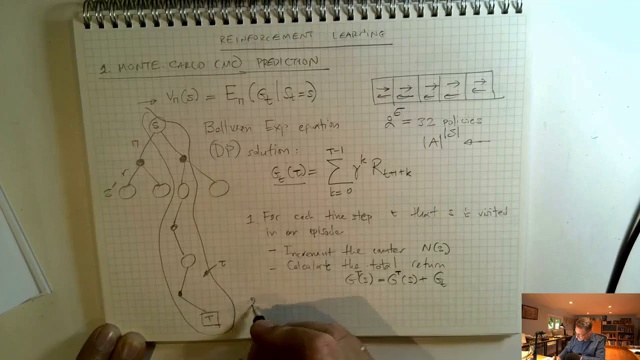 REINFORCEMENT LEARNING
1. MONTE CARLO (MC) PREDICTION
→ Vπ(s) = Eπ(Gt | St=s)
2^5 = 32 policies
|A|^|S| ←
Bellman Exp equation
(DP) solution:
Gt(τ) = Σ_{k=0}^{T-1} γ^k R_{t+1+k}
S
π
r
s'
τ
T
1 For each time step t that s is visited
in an episode
- Increment the counter N(s)
- Calculate the total return
G^T(s) = G^T(s) + Gt